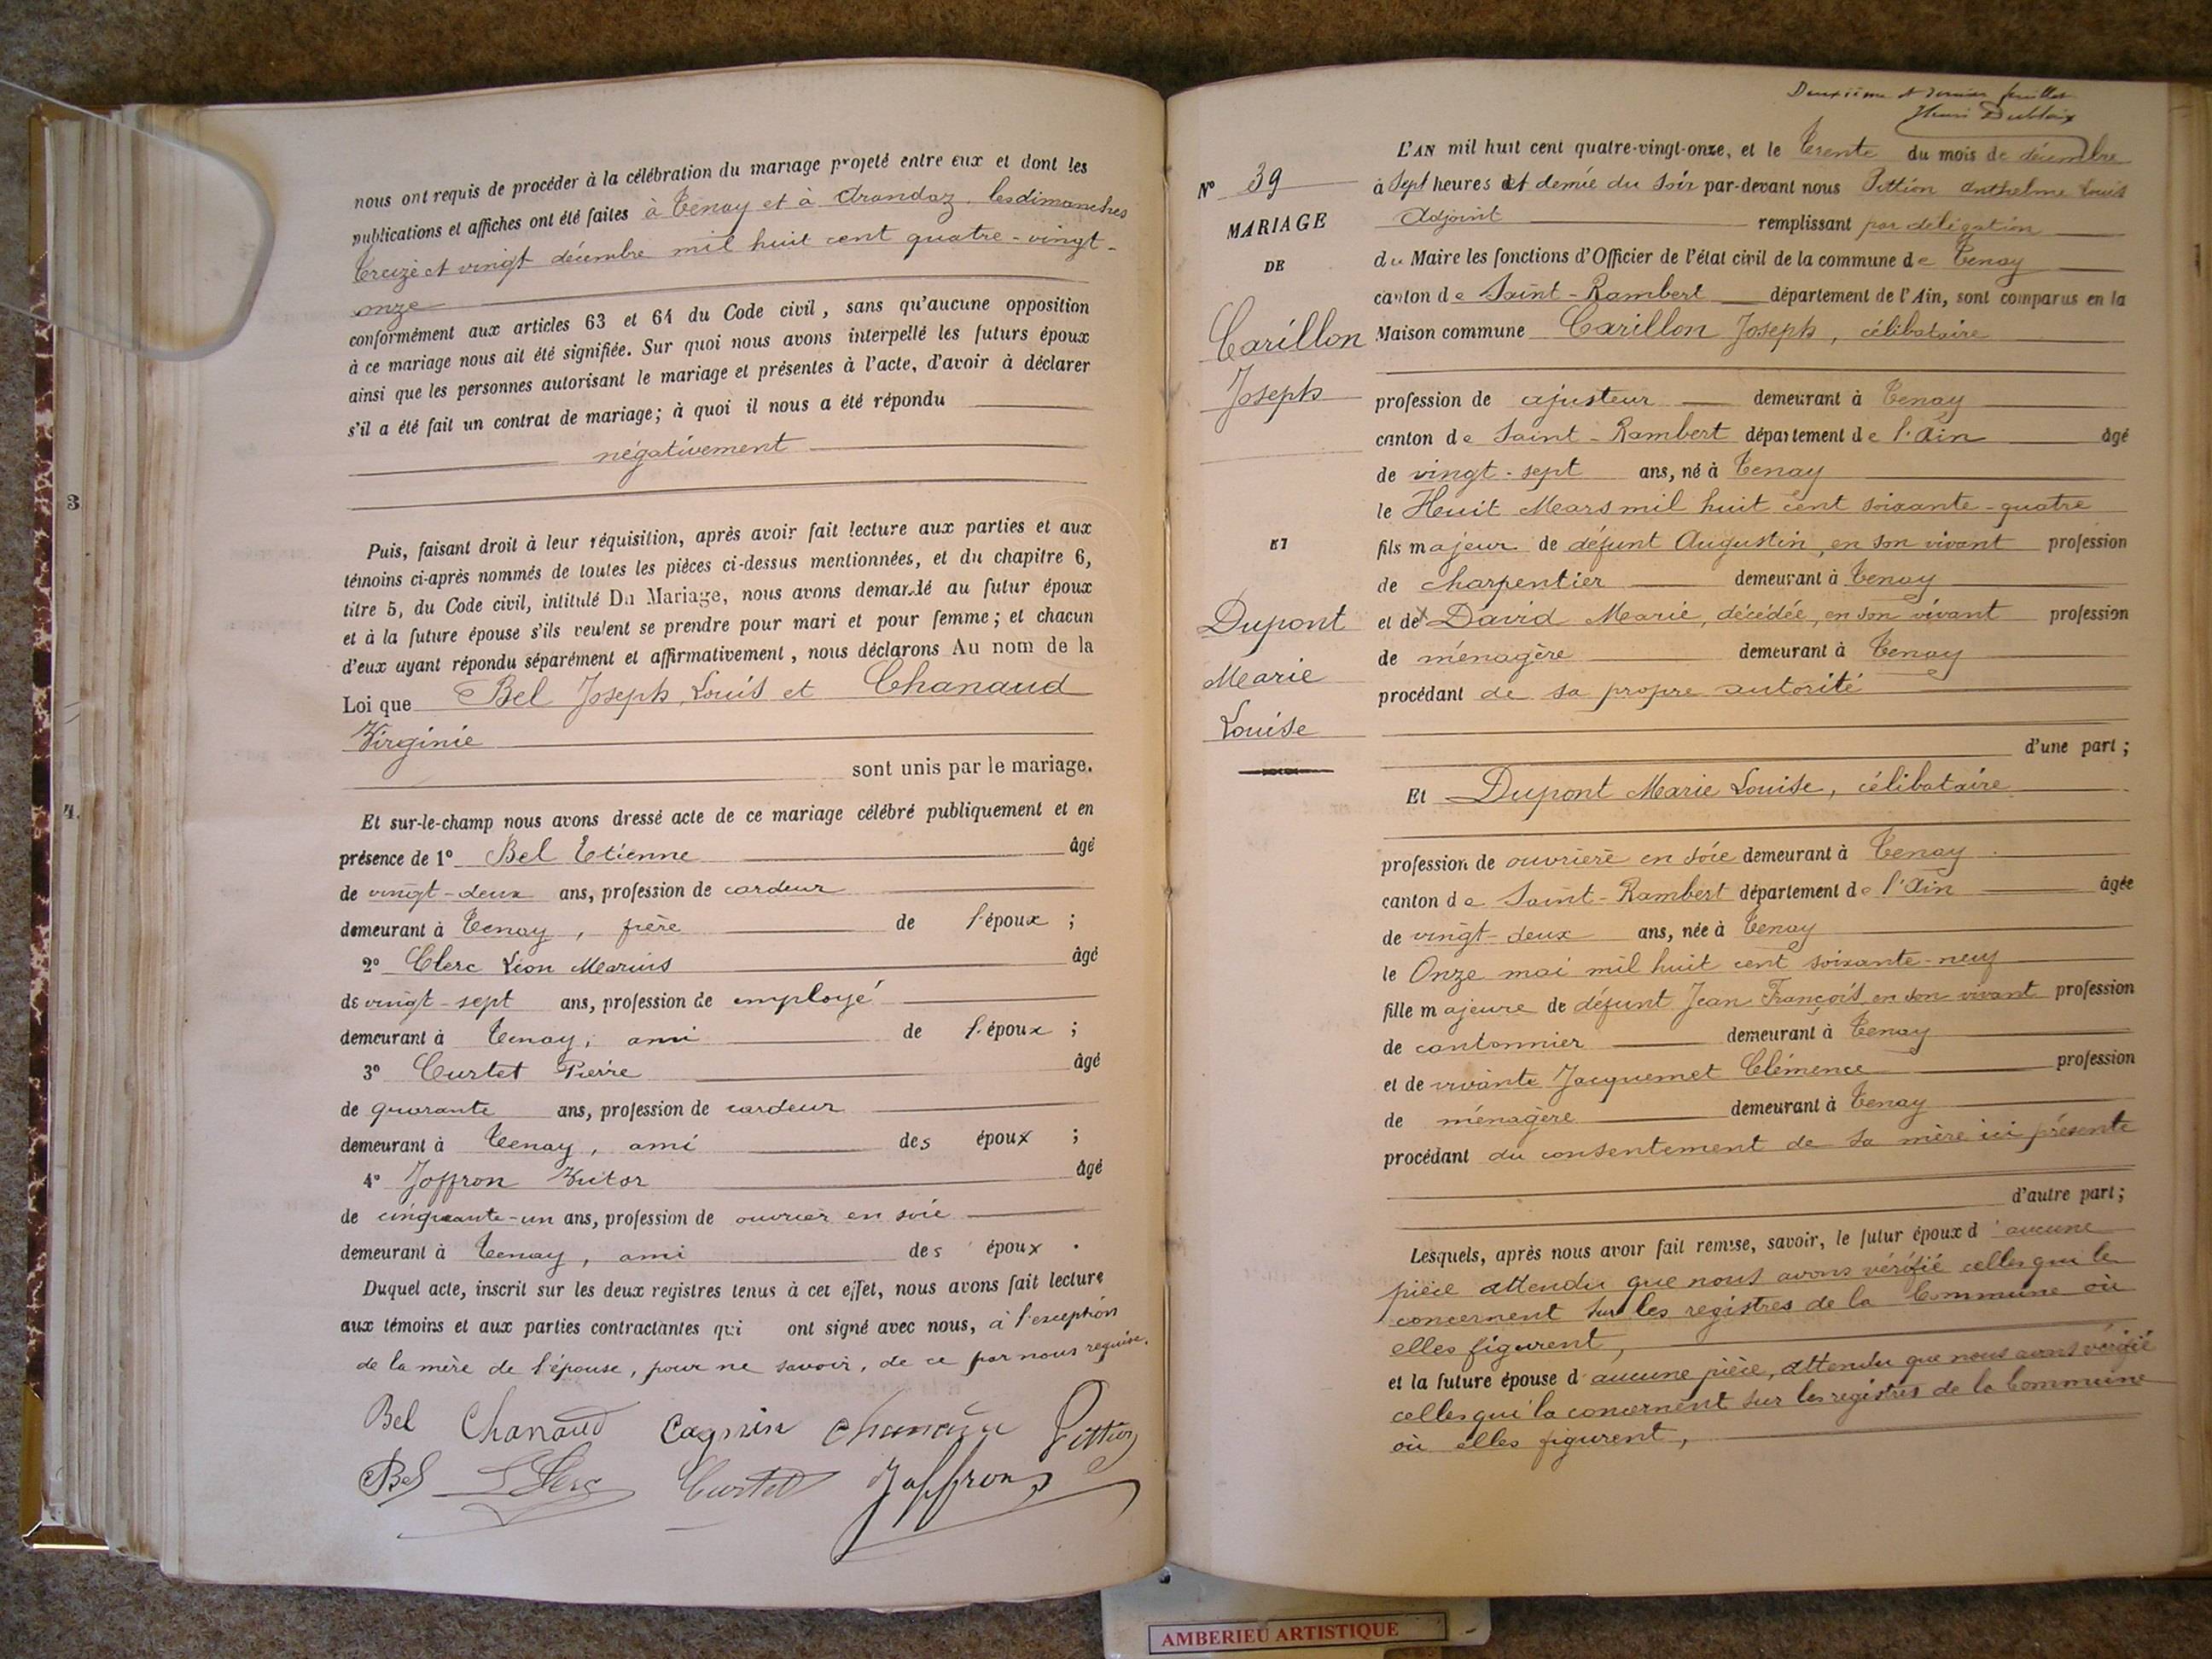 nous ont requis de procéder à la célébration du mariage projeté entre eux et dont les
publications et affiches ont été faites à Tenay et à Arandaz, les dimanches
treize et vingt décembre mil huit cent quatre-vingt-
onze
conformément aux articles 63 et 64 du Code civil, sans qu'aucune opposition
à ce mariage nous ait été signifiée. Sur quoi nous avons interpellé les futurs époux
ainsi que les personnes autorisant le mariage et présentes à l'acte, d'avoir à déclarer
s'il a été fait un contrat de mariage; à quoi il nous a été répondu
négativement
3
Puis, faisant droit à leur réquisition, après avoir fait lecture aux parties et aux
témoins ci-après nommés de toutes les pièces ci-dessus mentionnées, et du chapitre 6,
titre 5, du Code civil, intitulé Du Mariage, nous avons demandé au futur époux
et à la future épouse s'ils veulent se prendre pour mari et pour femme; et chacun
d'eux ayant répondu séparément et affirmativement, nous déclarons Au nom de la
Loi que Bel Joseph, Louis et Chanaud
Virginie
sont unis par le mariage.
4.
Et sur-le-champ nous avons dressé acte de ce mariage célébré publiquement et en
présence de 1° Bel Etienne âgé
de vingt-deux ans, profession de cardeur
demeurant à Tenay, frère de l'époux;
2° Clerc Léon Marius âgé
de vingt-sept ans, profession de employé
demeurant à Tenay, ami de l'époux;
3° Curtet Pierre âgé
de quarante ans, profession de cardeur
demeurant à Tenay, ami des époux;
4° Joffron Victor âgé
de cinquante-un ans, profession de ouvrier en soie
demeurant à Tenay, ami des époux.
Duquel acte, inscrit sur les deux registres tenus à cet effet, nous avons fait lecture
aux témoins et aux parties contractantes qui ont signé avec nous, à l'exception
de la mère de l'épouse, pour ne savoir, de ce par nous requise.
Bel Chanaud Pittion
Bel Clerc Curtet Joffron
Deuxième et dernier feuillet
N° 39
MARIAGE
DE
Carillon
Joseph
ET
Dupont
Marie
Louise
L'AN mil huit cent quatre-vingt-onze, et le trente du mois de décembre
à Sept heures et demie du Soir par-devant nous Pittion Anthelme Louis
Adjoint remplissant par délégation
du Maire les fonctions d'Officier de l'état civil de la commune de Tenay
canton de Saint-Rambert département de l'Ain, sont comparus en la
Maison commune Carillon Joseph, célibataire
profession de ajusteur demeurant à Tenay
canton de Saint-Rambert département de l'Ain âgé
de vingt-sept ans, né à Tenay
le Huit Mars mil huit cent soixante-quatre
fils majeur de défunt Augustin, en son vivant profession
de charpentier demeurant à Tenay
et de David Marie, décédée, en son vivant profession
de ménagère demeurant à Tenay
procédant de sa propre autorité
d'une part;
Et Dupont Marie Louise, célibataire
profession de ouvrière en soie demeurant à Tenay
canton de Saint-Rambert département de l'Ain âgée
de vingt-deux ans, née à Tenay
le Onze mai mil huit cent soixante-neuf
fille majeure de défunt Jean François, en son vivant profession
de cantonnier demeurant à Tenay
et de vivante Jacquemet Clémence profession
de ménagère demeurant à Tenay
procédant du consentement de sa mère ici présente
d'autre part;
Lesquels, après nous avoir fait remise, savoir, le futur époux d'aucune
pièce attendu que nous avons vérifié celles qui le
concernent sur les registres de la Commune où
elles figurent,
et la future épouse d'aucune pièce, attendu que nous avons vérifié
celles qui la concernent sur les registres de la Commune
où elles figurent,
AMBERIEU ARTISTIQUE